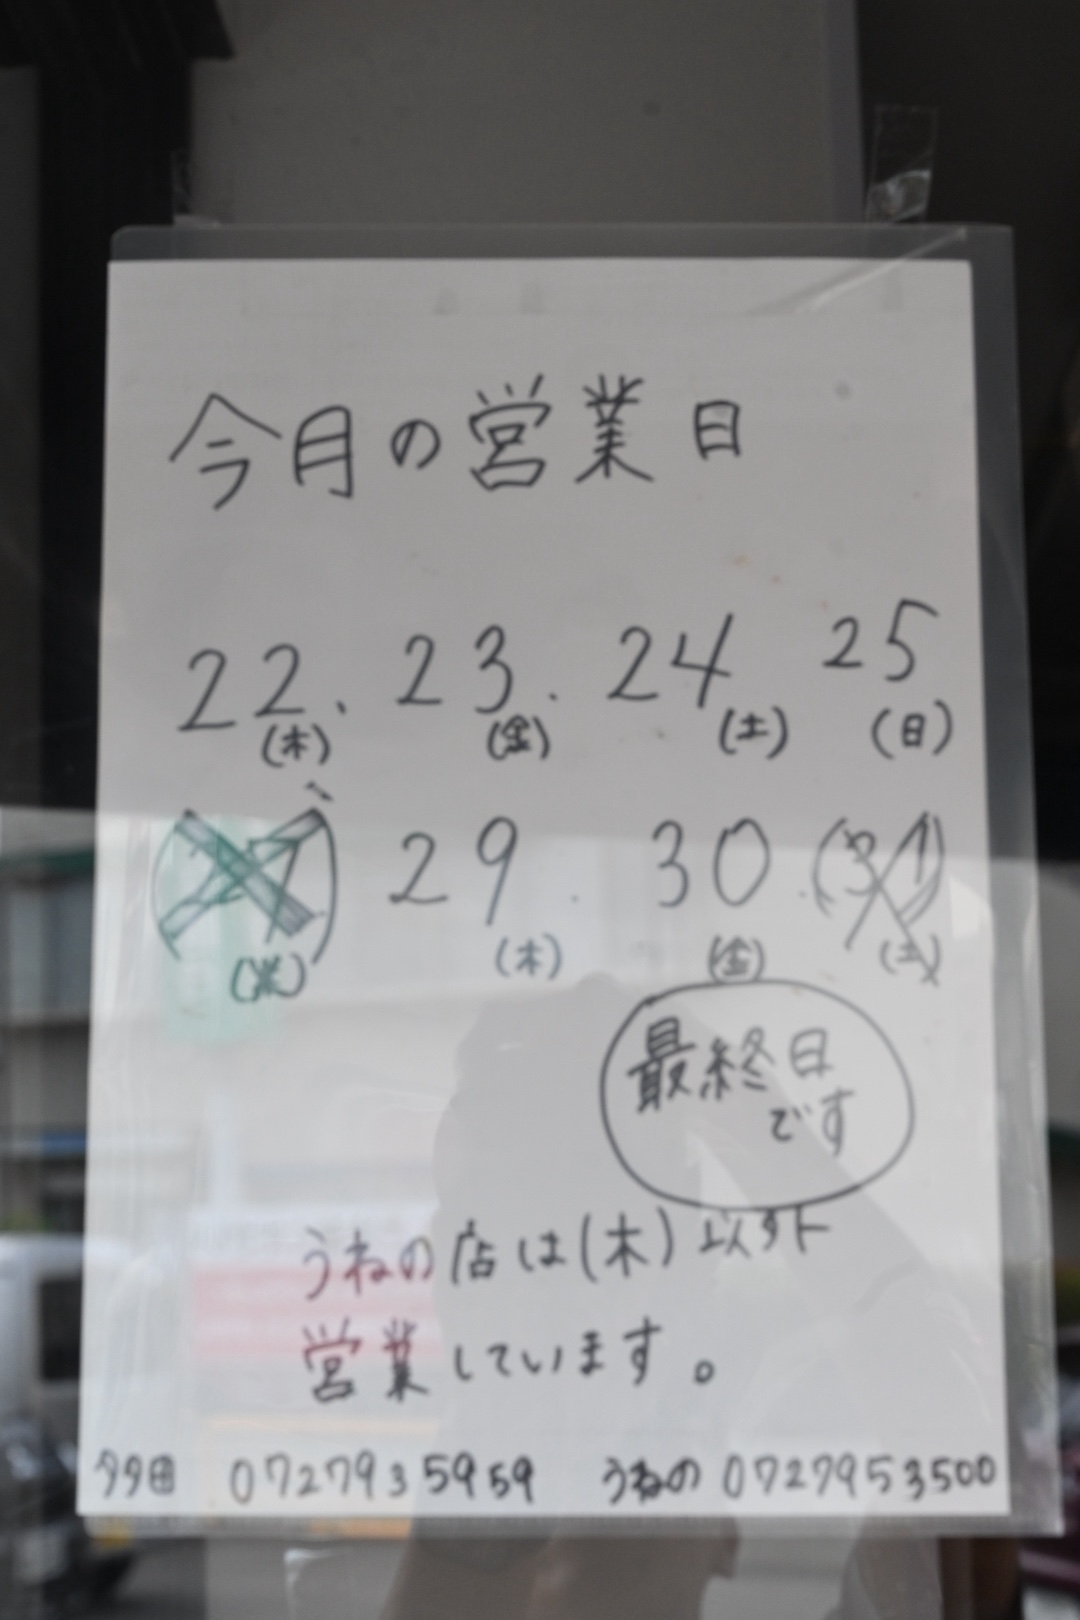 今月の営業日
22. 23. 24 25
(木) (金) (土) (日)
29. 30. (31)
(木) (金) (土)
最終日
です
うねの店は(木)以外
営業しています。
多田 0727935959 うねの 0727953500